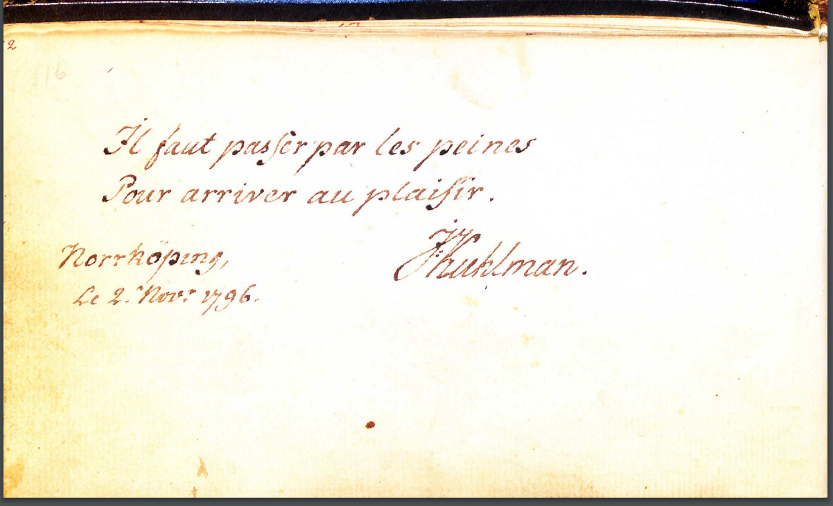 2
116
Il faut passer par les peines
Pour arriver au plaisir.
Norrköping,
Le 2. Novr 1796.
Kuhlman.